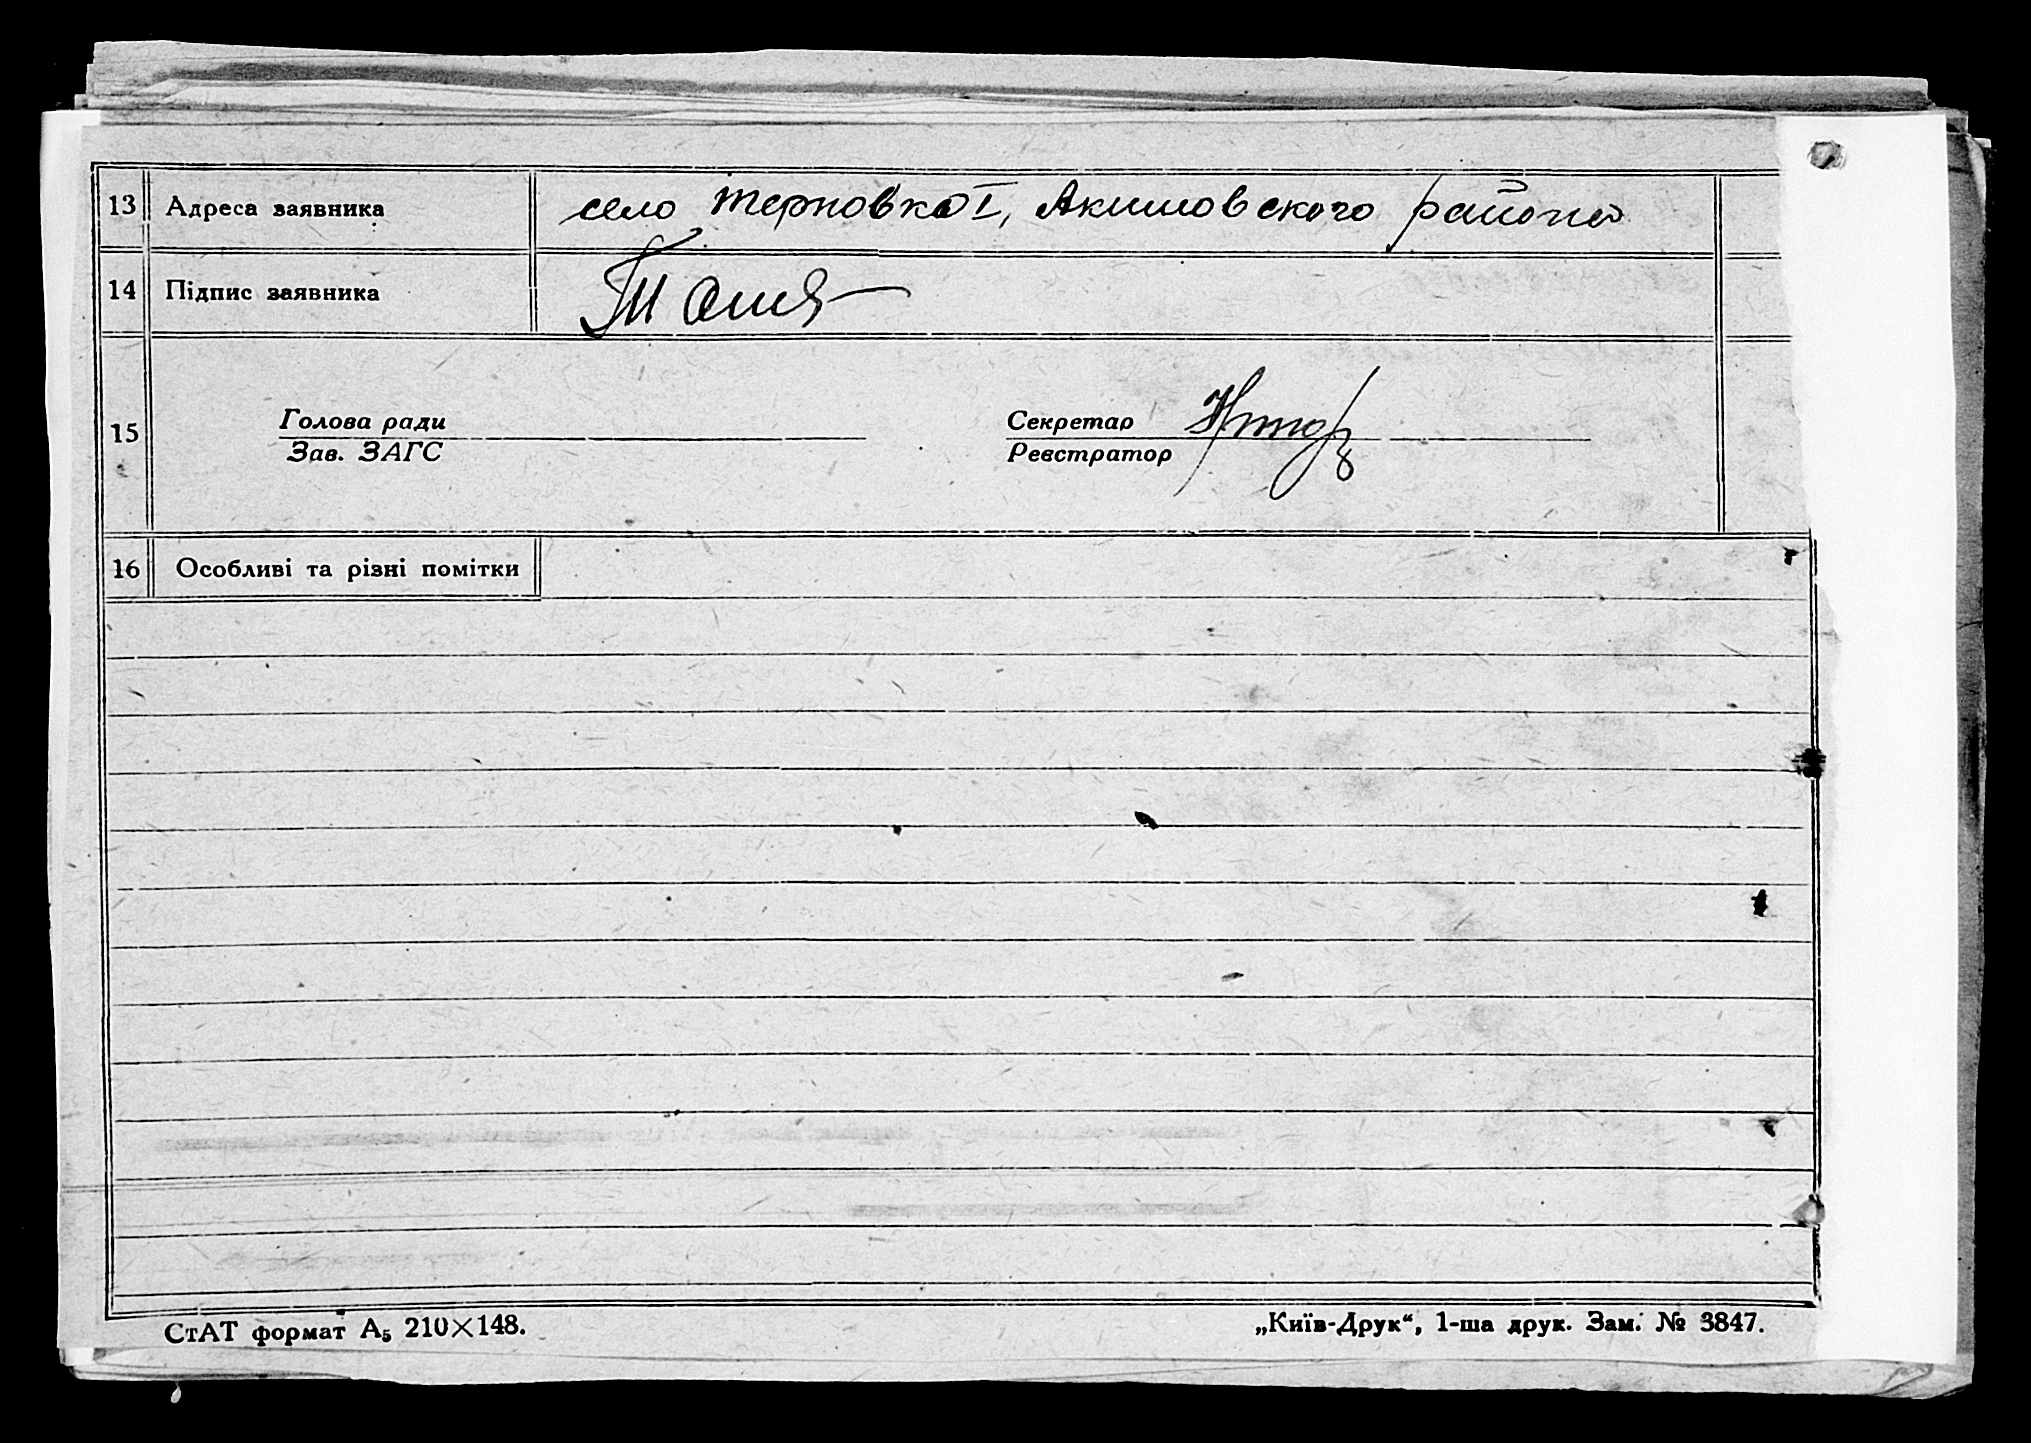 13 Адреса заявника село Терновка I, Акимовского района
14 Підпис заявника
15 Голова ради Секретар
Зав. ЗАГС Реєстратор
16 Особливі та різні помітки
СтАТ формат А₅ 210×148. „Київ-Друк“, 1-ша друк. Зам. № 3847.